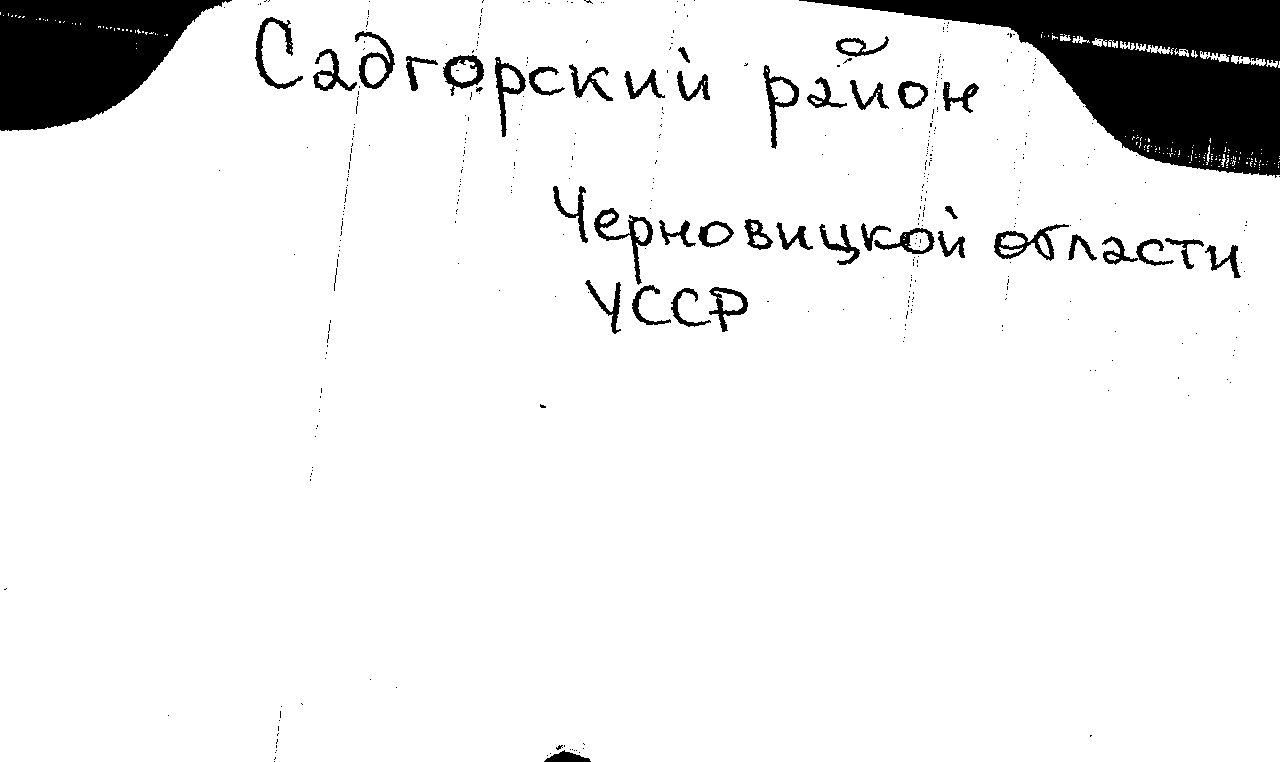 Садгорский район
Черновицкой области
УССР